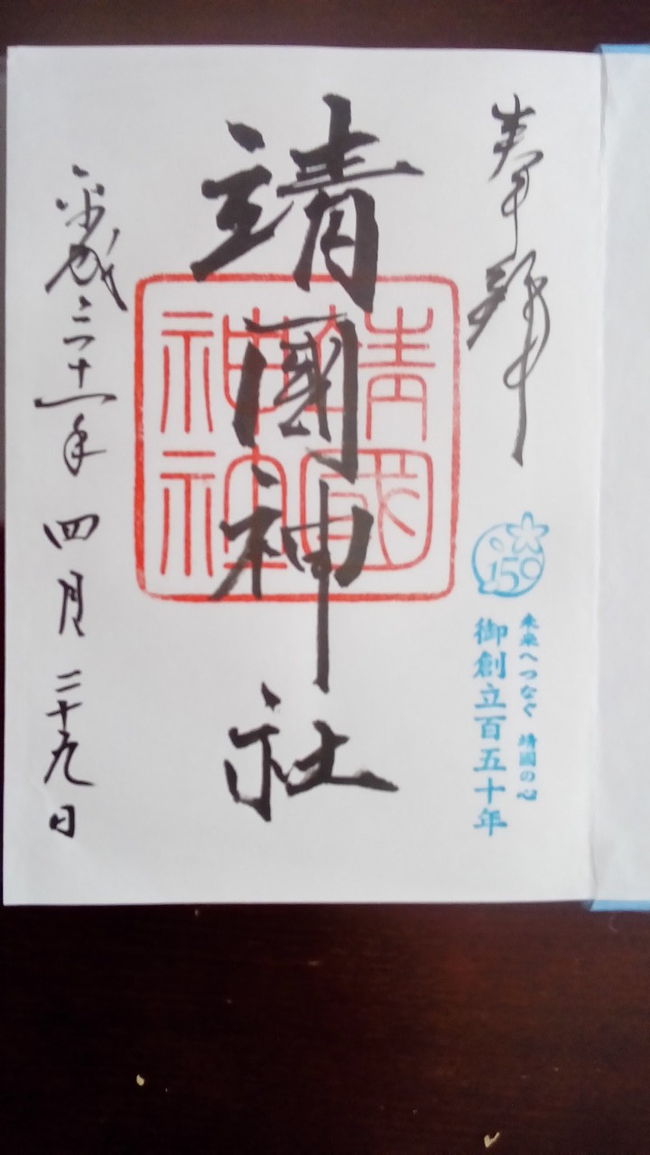 奉拝
150
未来へつなぐ 靖國の心
御創立百五十年
靖國神社
靖國
神社
平成三十一年 四月 二十九日